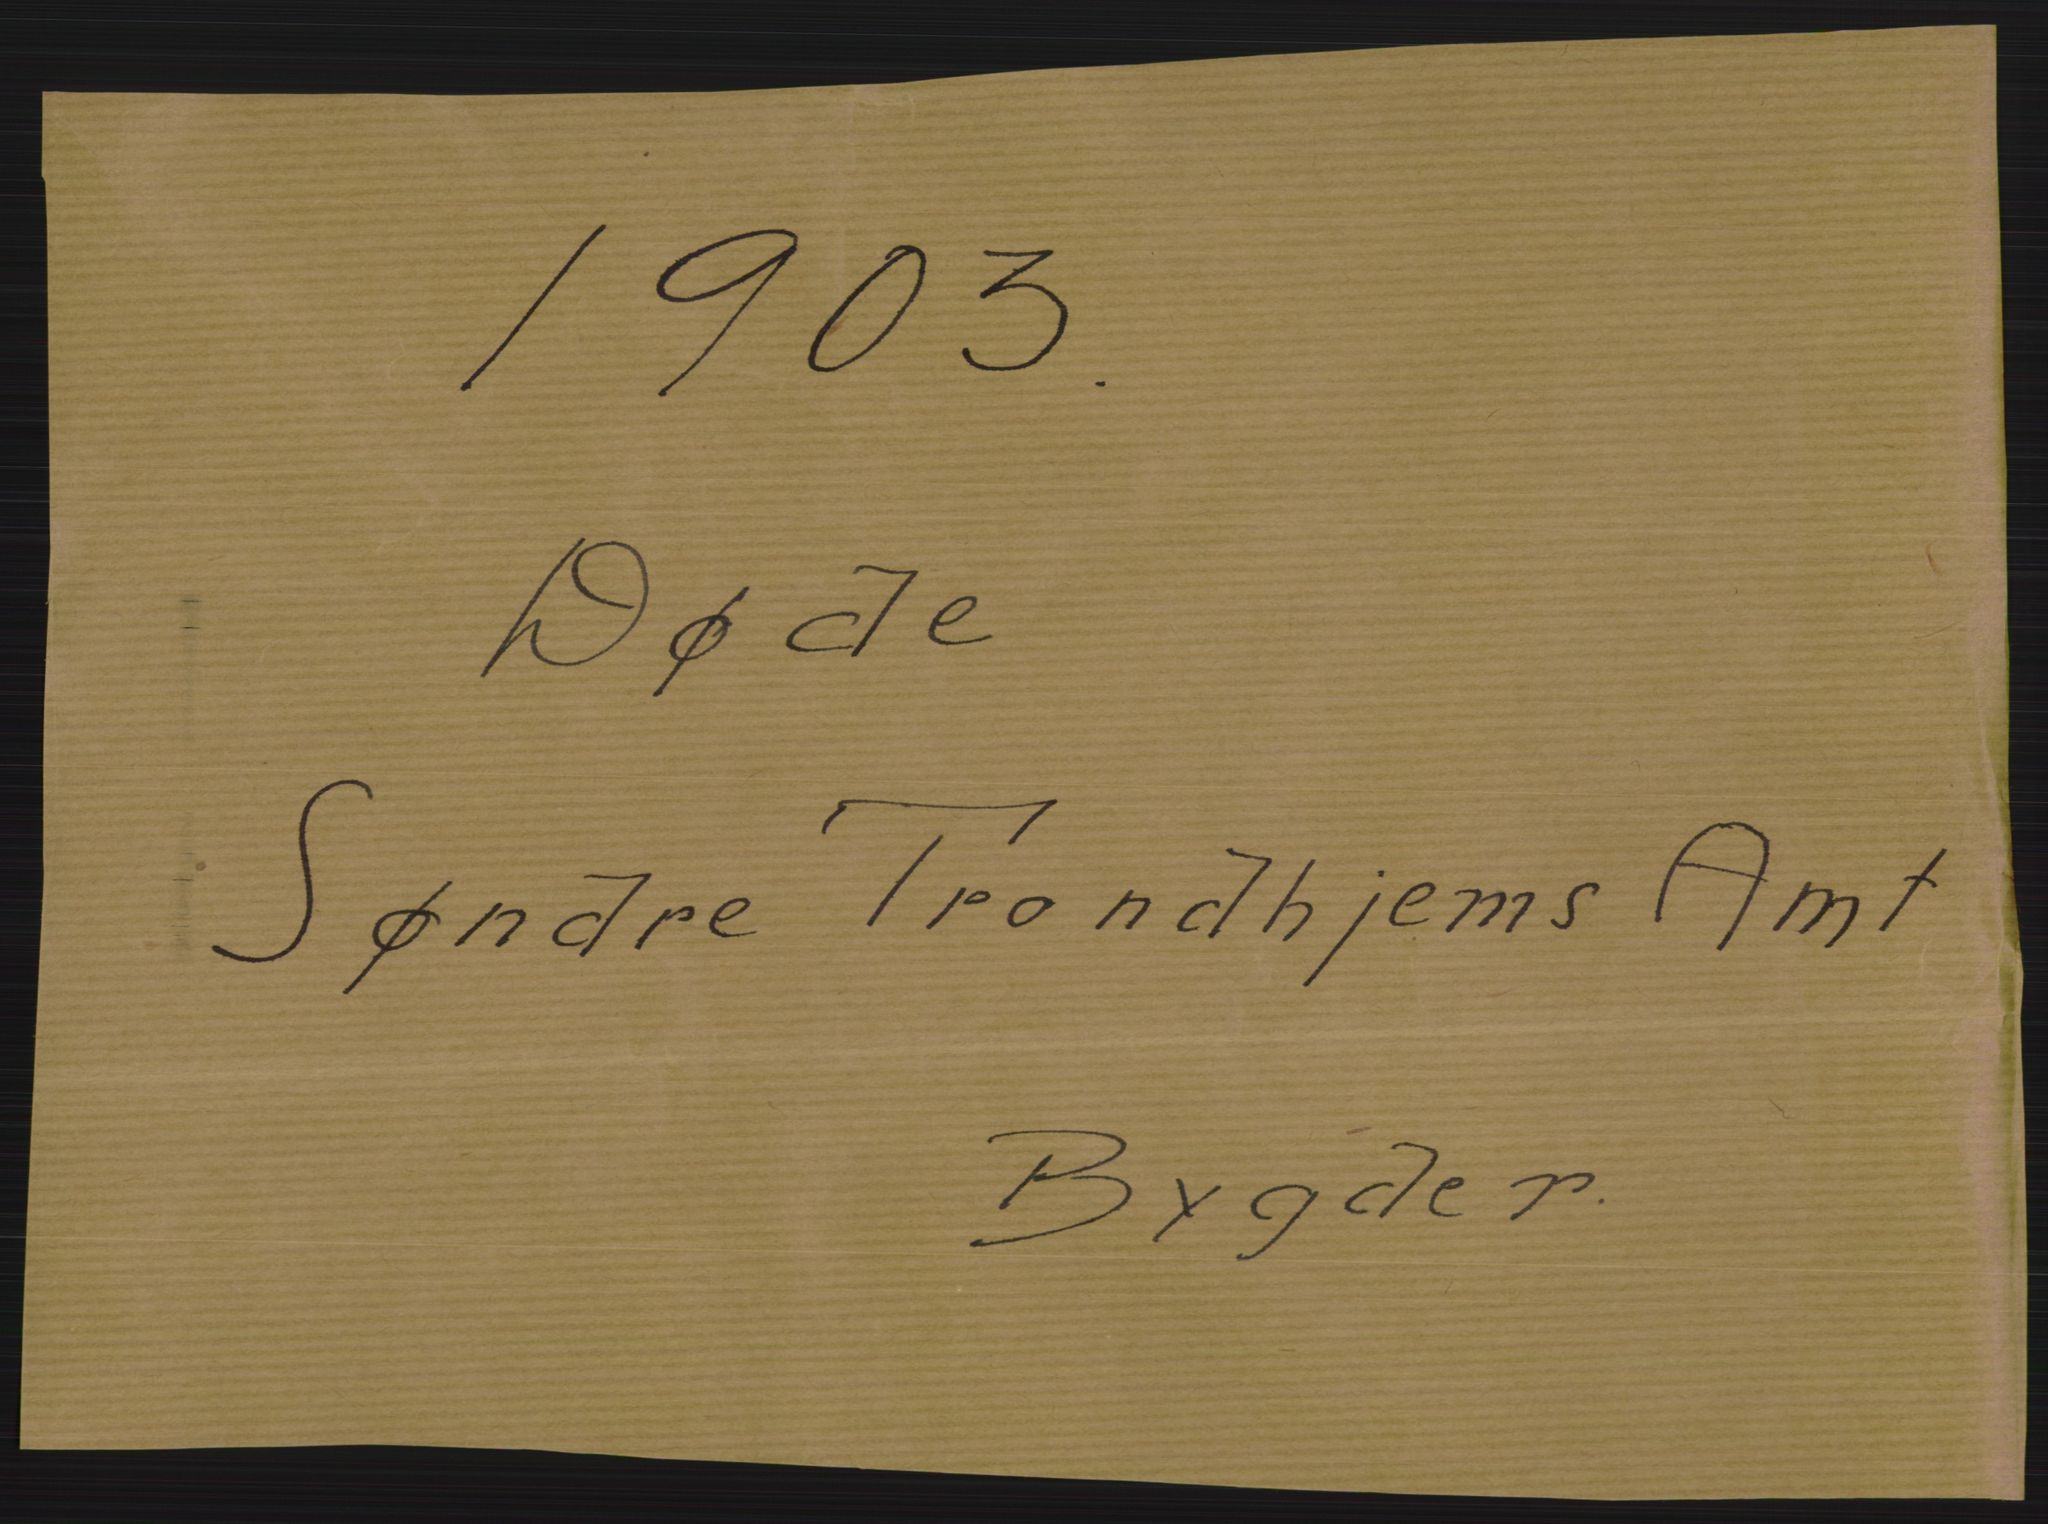 1903.
Døde
Søndre Trondhjems Amt
Bygder.